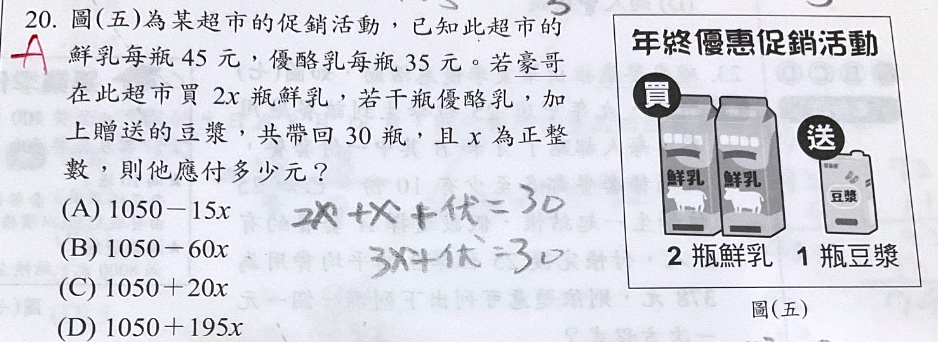 20. 圖(五)為某超市的促銷活動，已知此超市的
A
鮮乳每瓶 45 元，優酪乳每瓶 35 元。若豪哥
在此超市買 2x 瓶鮮乳，若干瓶優酪乳，加
上贈送的豆漿，共帶回 30 瓶，且 x 為正整
數，則他應付多少元？
(A) 1050－15x
(B) 1050－60x
(C) 1050＋20x
(D) 1050＋195x
2x+x+伏=30
3x+伏=30
年終優惠促銷活動
買
送
鮮乳
鮮乳
豆漿
2 瓶鮮乳
1 瓶豆漿
圖(五)